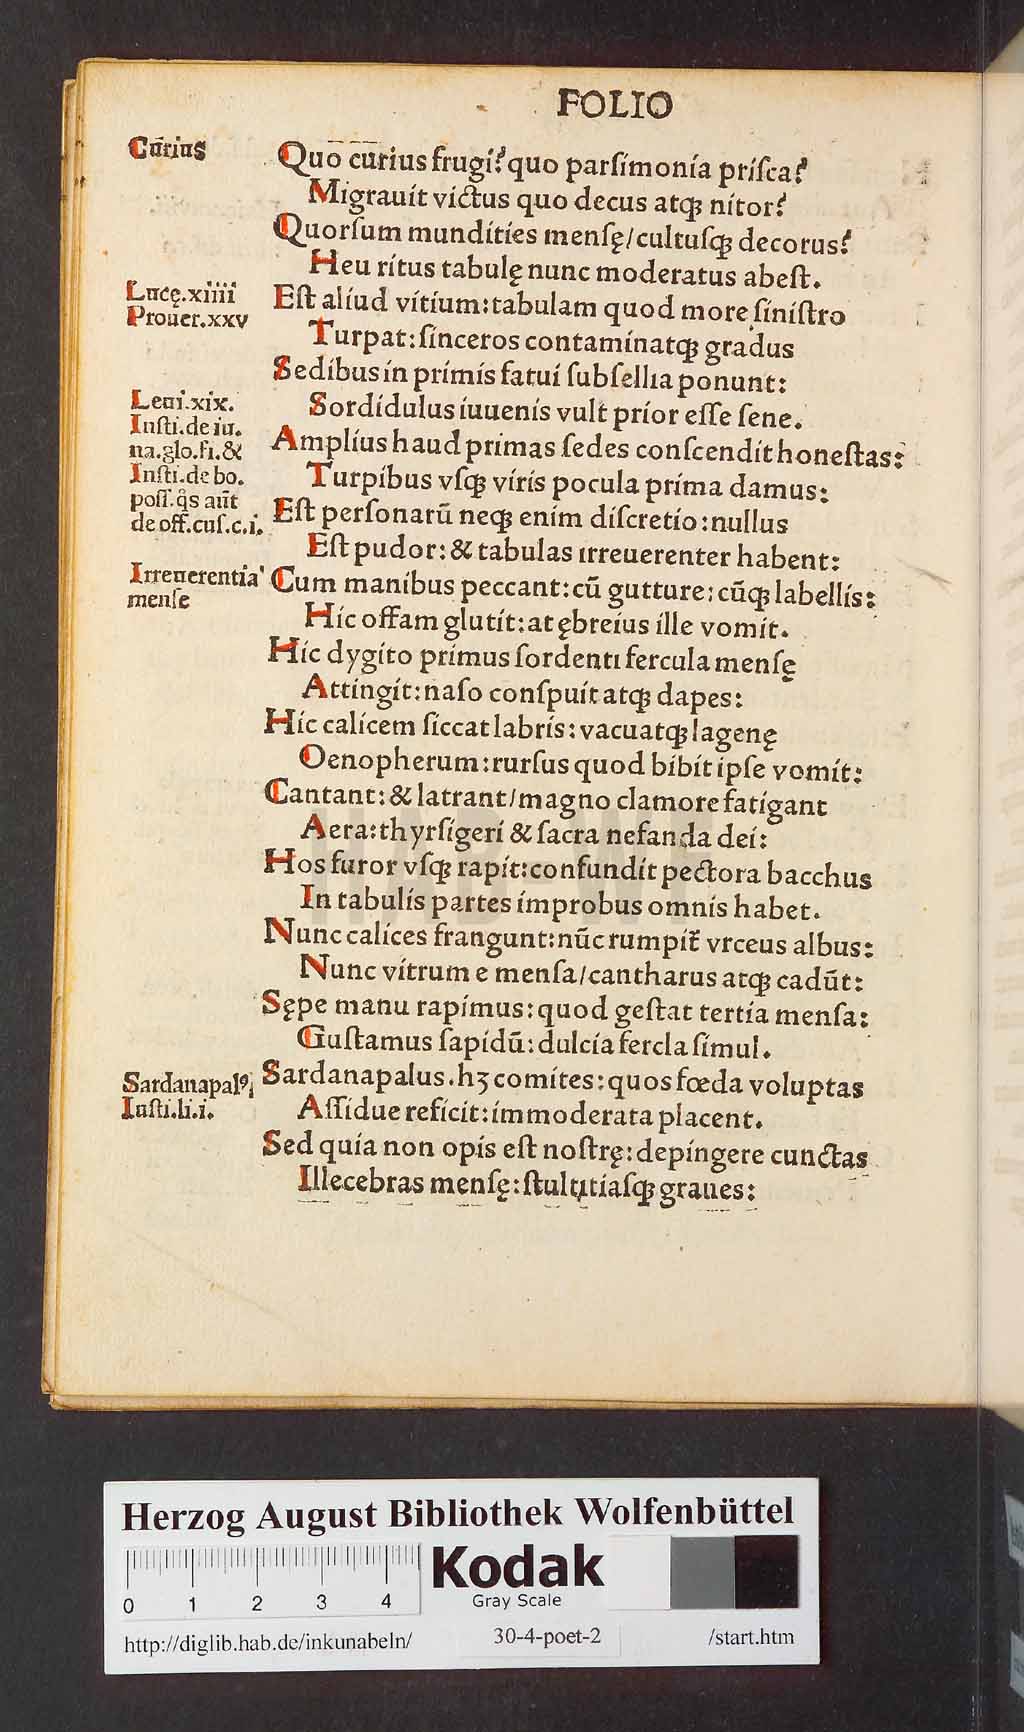 FOLIO
Cūrius
Quo curius frugi? quo parſimonia priſca?
Migrauit victus quo decus atqꝫ nitor?
Quorſum mundities menſę/cultuſqꝫ decorus?
Heu ritus tabulę nunc moderatus abeſt.
Lucę.xiiii
Prouer.xxv
Eſt aliud vitium:tabulam quod more ſiniſtro
Turpat:ſinceros contaminatqꝫ gradus
Sedibus in primis fatui ſubſellia ponunt:
Leui.xix.
Inſti.de iu.
na.glo.fi.&
Inſti.de bo.
poſſ.q̄s aūt
de off.cuſ.c.i.
Sordidulus iuuenis vult prior eſſe ſene.
Amplius haud primas ſedes conſcendit honeſtas:
Turpibus vſqꝫ viris pocula prima damus:
Eſt perſonarū neqꝫ enim diſcretio:nullus
Eſt pudor:& tabulas irreuerenter habent:
Irreuerentia
menſe
Cum manibus peccant:cū gutture:cūqꝫ labellis:
Hic offam glutit:at ębreius ille vomit.
Hic dygito primus ſordenti fercula menſę
Attingit:naſo conſpuit atqꝫ dapes:
Hic calicem ſiccat labris:vacuatqꝫ lagenę
Oenopherum:rurſus quod bibit ipſe vomit:
Cantant:& latrant/magno clamore fatigant
Aera:thyrſigeri & ſacra nefanda dei:
Hos furor vſqꝫ rapit:confundit pectora bacchus
In tabulis partes improbus omnis habet.
Nunc calices frangunt:nūc rumpit᷑ vrceus albus:
Nunc vitrum e menſa/cantharus atqꝫ cadūt:
Sępe manu rapimus:quod geſtat tertia menſa:
Guſtamus ſapidū:dulcia fercla ſimul.
Sardanapalꝰ
Inſti.li.i.
Sardanapalus.hꝫ comites:quos fœda voluptas
Aſſidue reficit:immoderata placent.
Sed quia non opis eſt noſtrę:depingere cunctas
Illecebras menſę:ſtultitiaſqꝫ graues:
HAB-WF
Herzog August Bibliothek Wolfenbüttel
0 1 2 3 4
Kodak
Gray Scale
http://diglib.hab.de/inkunabeln/ 30-4-poet-2 /start.htm